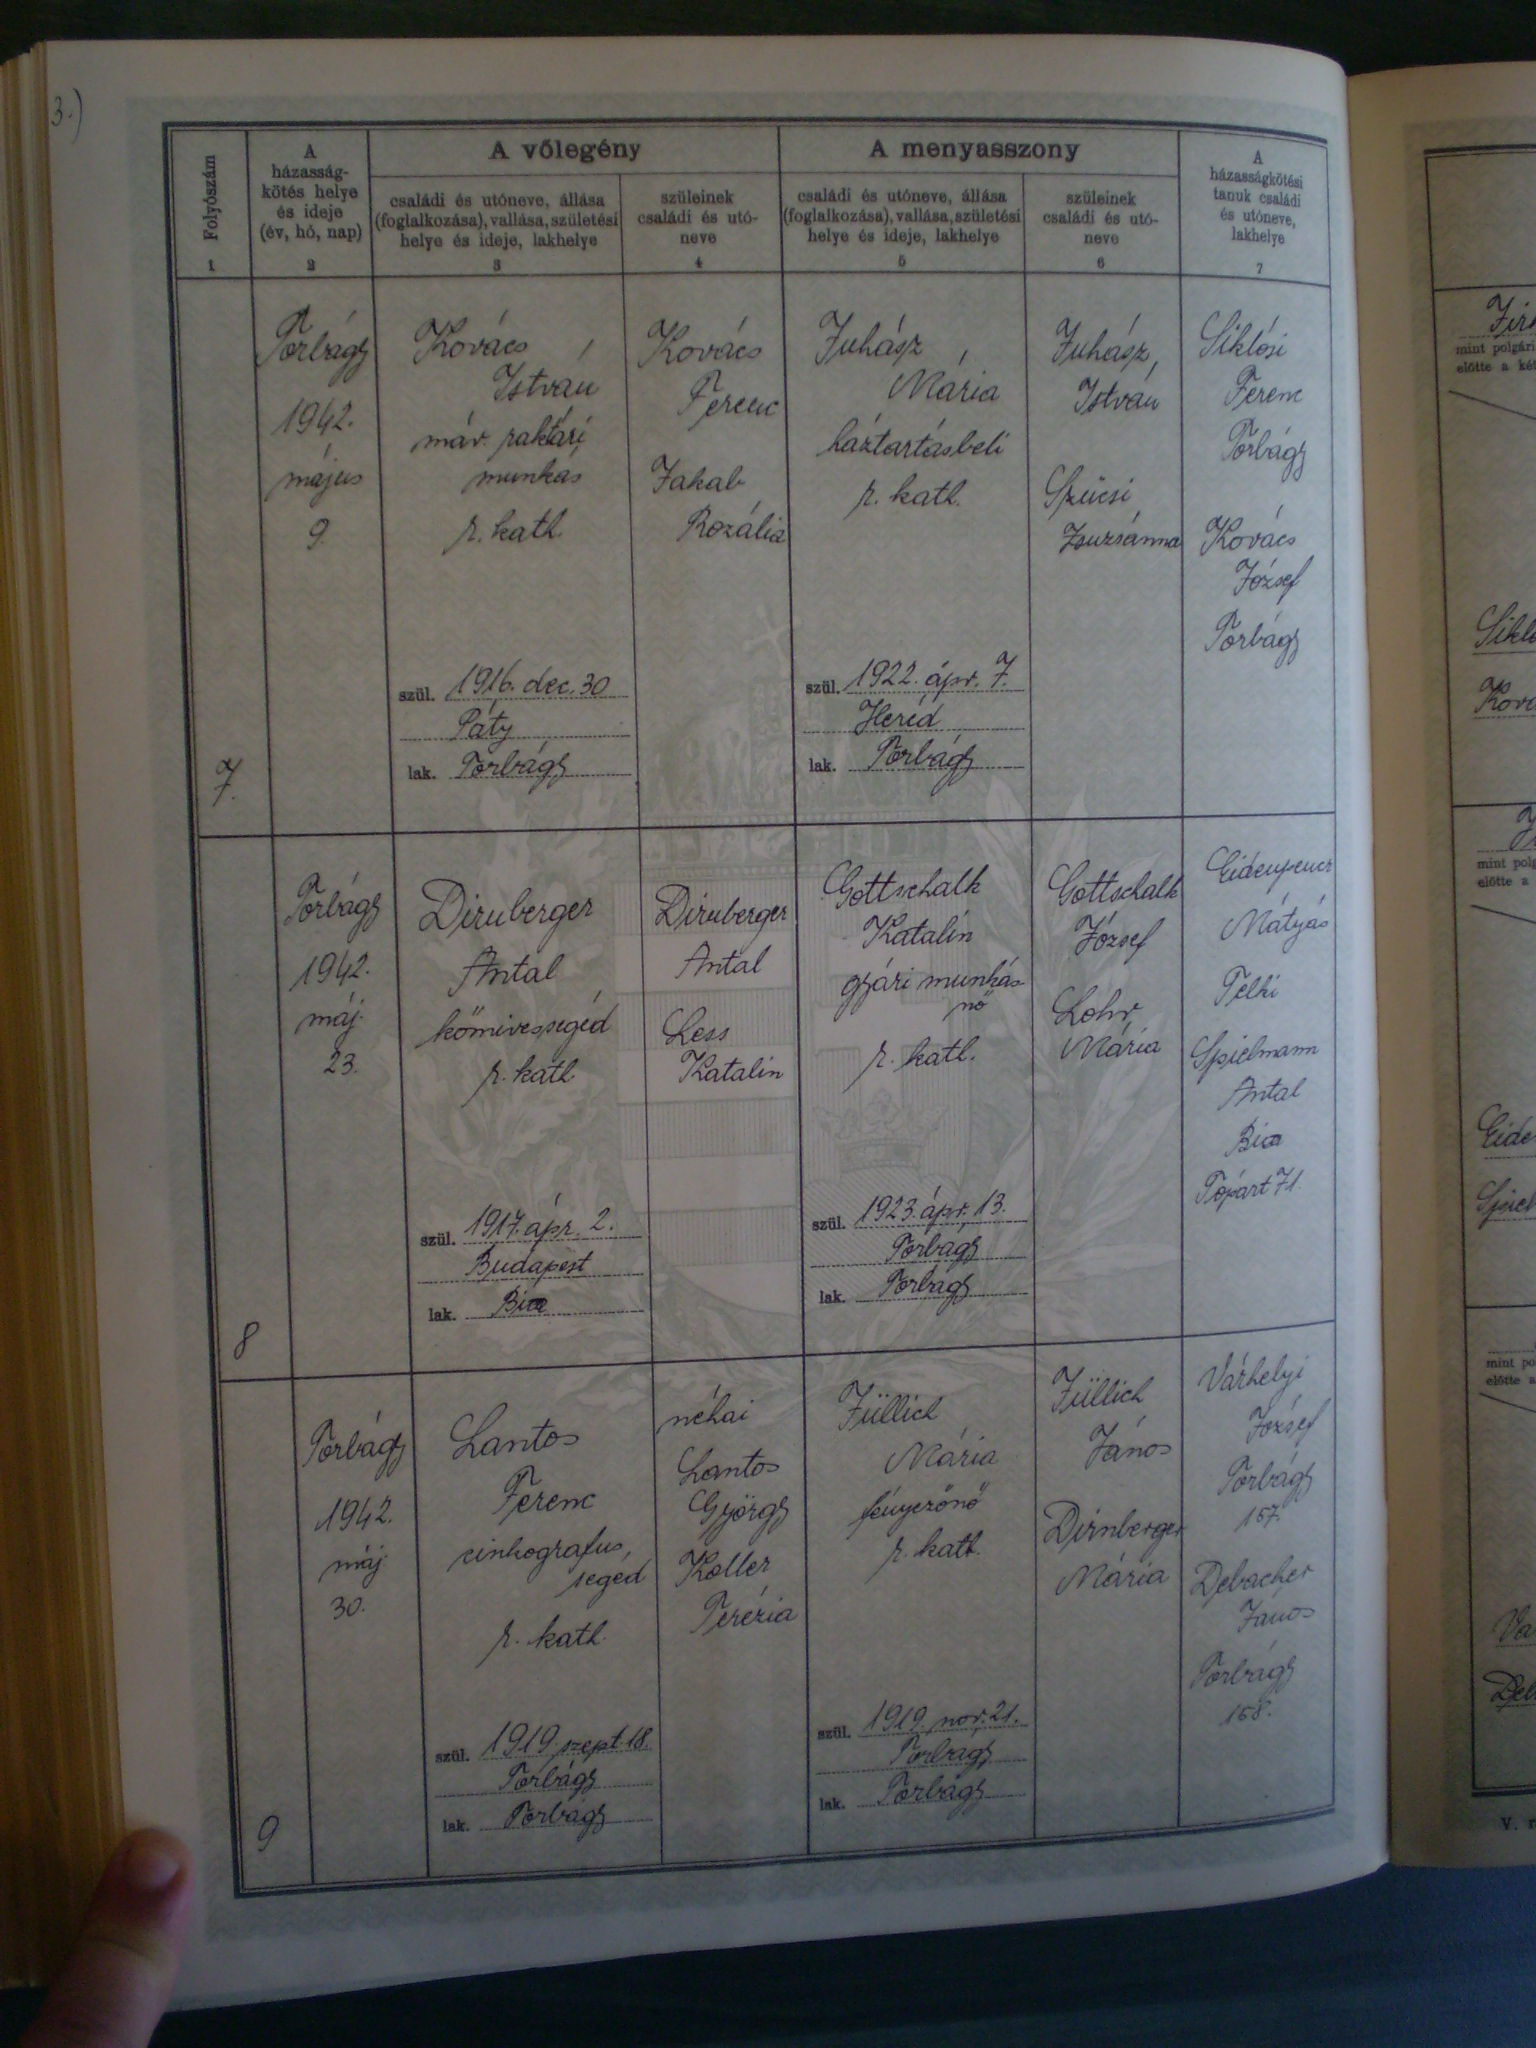 3.)
Folyószám
1
A
házasság-
kötés helye
és ideje
(év, hó, nap)
2
A vőlegény
családi és utóneve, állása
(foglalkozása), vallása, születési
helye és ideje, lakhelye
3
szüleinek
családi és utó-
neve
4
A menyasszony
családi és utóneve, állása
(foglalkozása), vallása, születési
helye és ideje, lakhelye
5
szüleinek
családi és utó-
neve
6
A
házasságkötési
tanuk családi
és utóneve,
lakhelye
7
7.
Torbágy
1942.
május
9.
Kovács
István
máv. raktári
munkás
r. kath.
szül. 1916. dec. 30
Páty
lak. Torbágy
Kovács
Ferenc
Jakab
Rozália
Juhász
Mária
háztartásbeli
r. kath.
szül. 1922. ápr. 7.
Heréd
lak. Torbágy
Juhász,
István
Szücsi
Zsuzsánna
Siklósi
Ferenc
Torbágy
Kovács
József
Torbágy
8
Torbágy
1942.
máj.
23.
Dirnberger
Antal
kőmivessegéd
r. kath.
szül. 1917. ápr. 2.
Budapest
lak. Bia
Dirnberger
Antal
Less
Katalin
Gottschalk
Katalin
gyári munkás-
nő
r. kath.
szül. 1923. ápr. 13.
Torbágy
lak. Torbágy
Gottschalk
József
Lohr
Mária
Eidenpencz
Mátyás
Telki
Spielmann
Antal
Bia
Tópart 71.
9
Torbágy
1942.
máj.
30.
Lantos
Ferenc
cinkografus,
segéd
r. kath.
szül. 1919. szept. 18.
Torbágy
lak. Torbágy
néhai
Lantos
György
Koller
Terézia
Jüllich
Mária
fényezőnő
r. kath.
szül. 1919. nov. 21.
Torbágy
lak. Torbágy
Jüllich
János
Dirnberger
Mária
Várhelyi
József
Torbágy
157.
Debacher
János
Torbágy
158.
mint polgári
előtte a két
mint polg
előtte a
mint po
előtte a
V. r